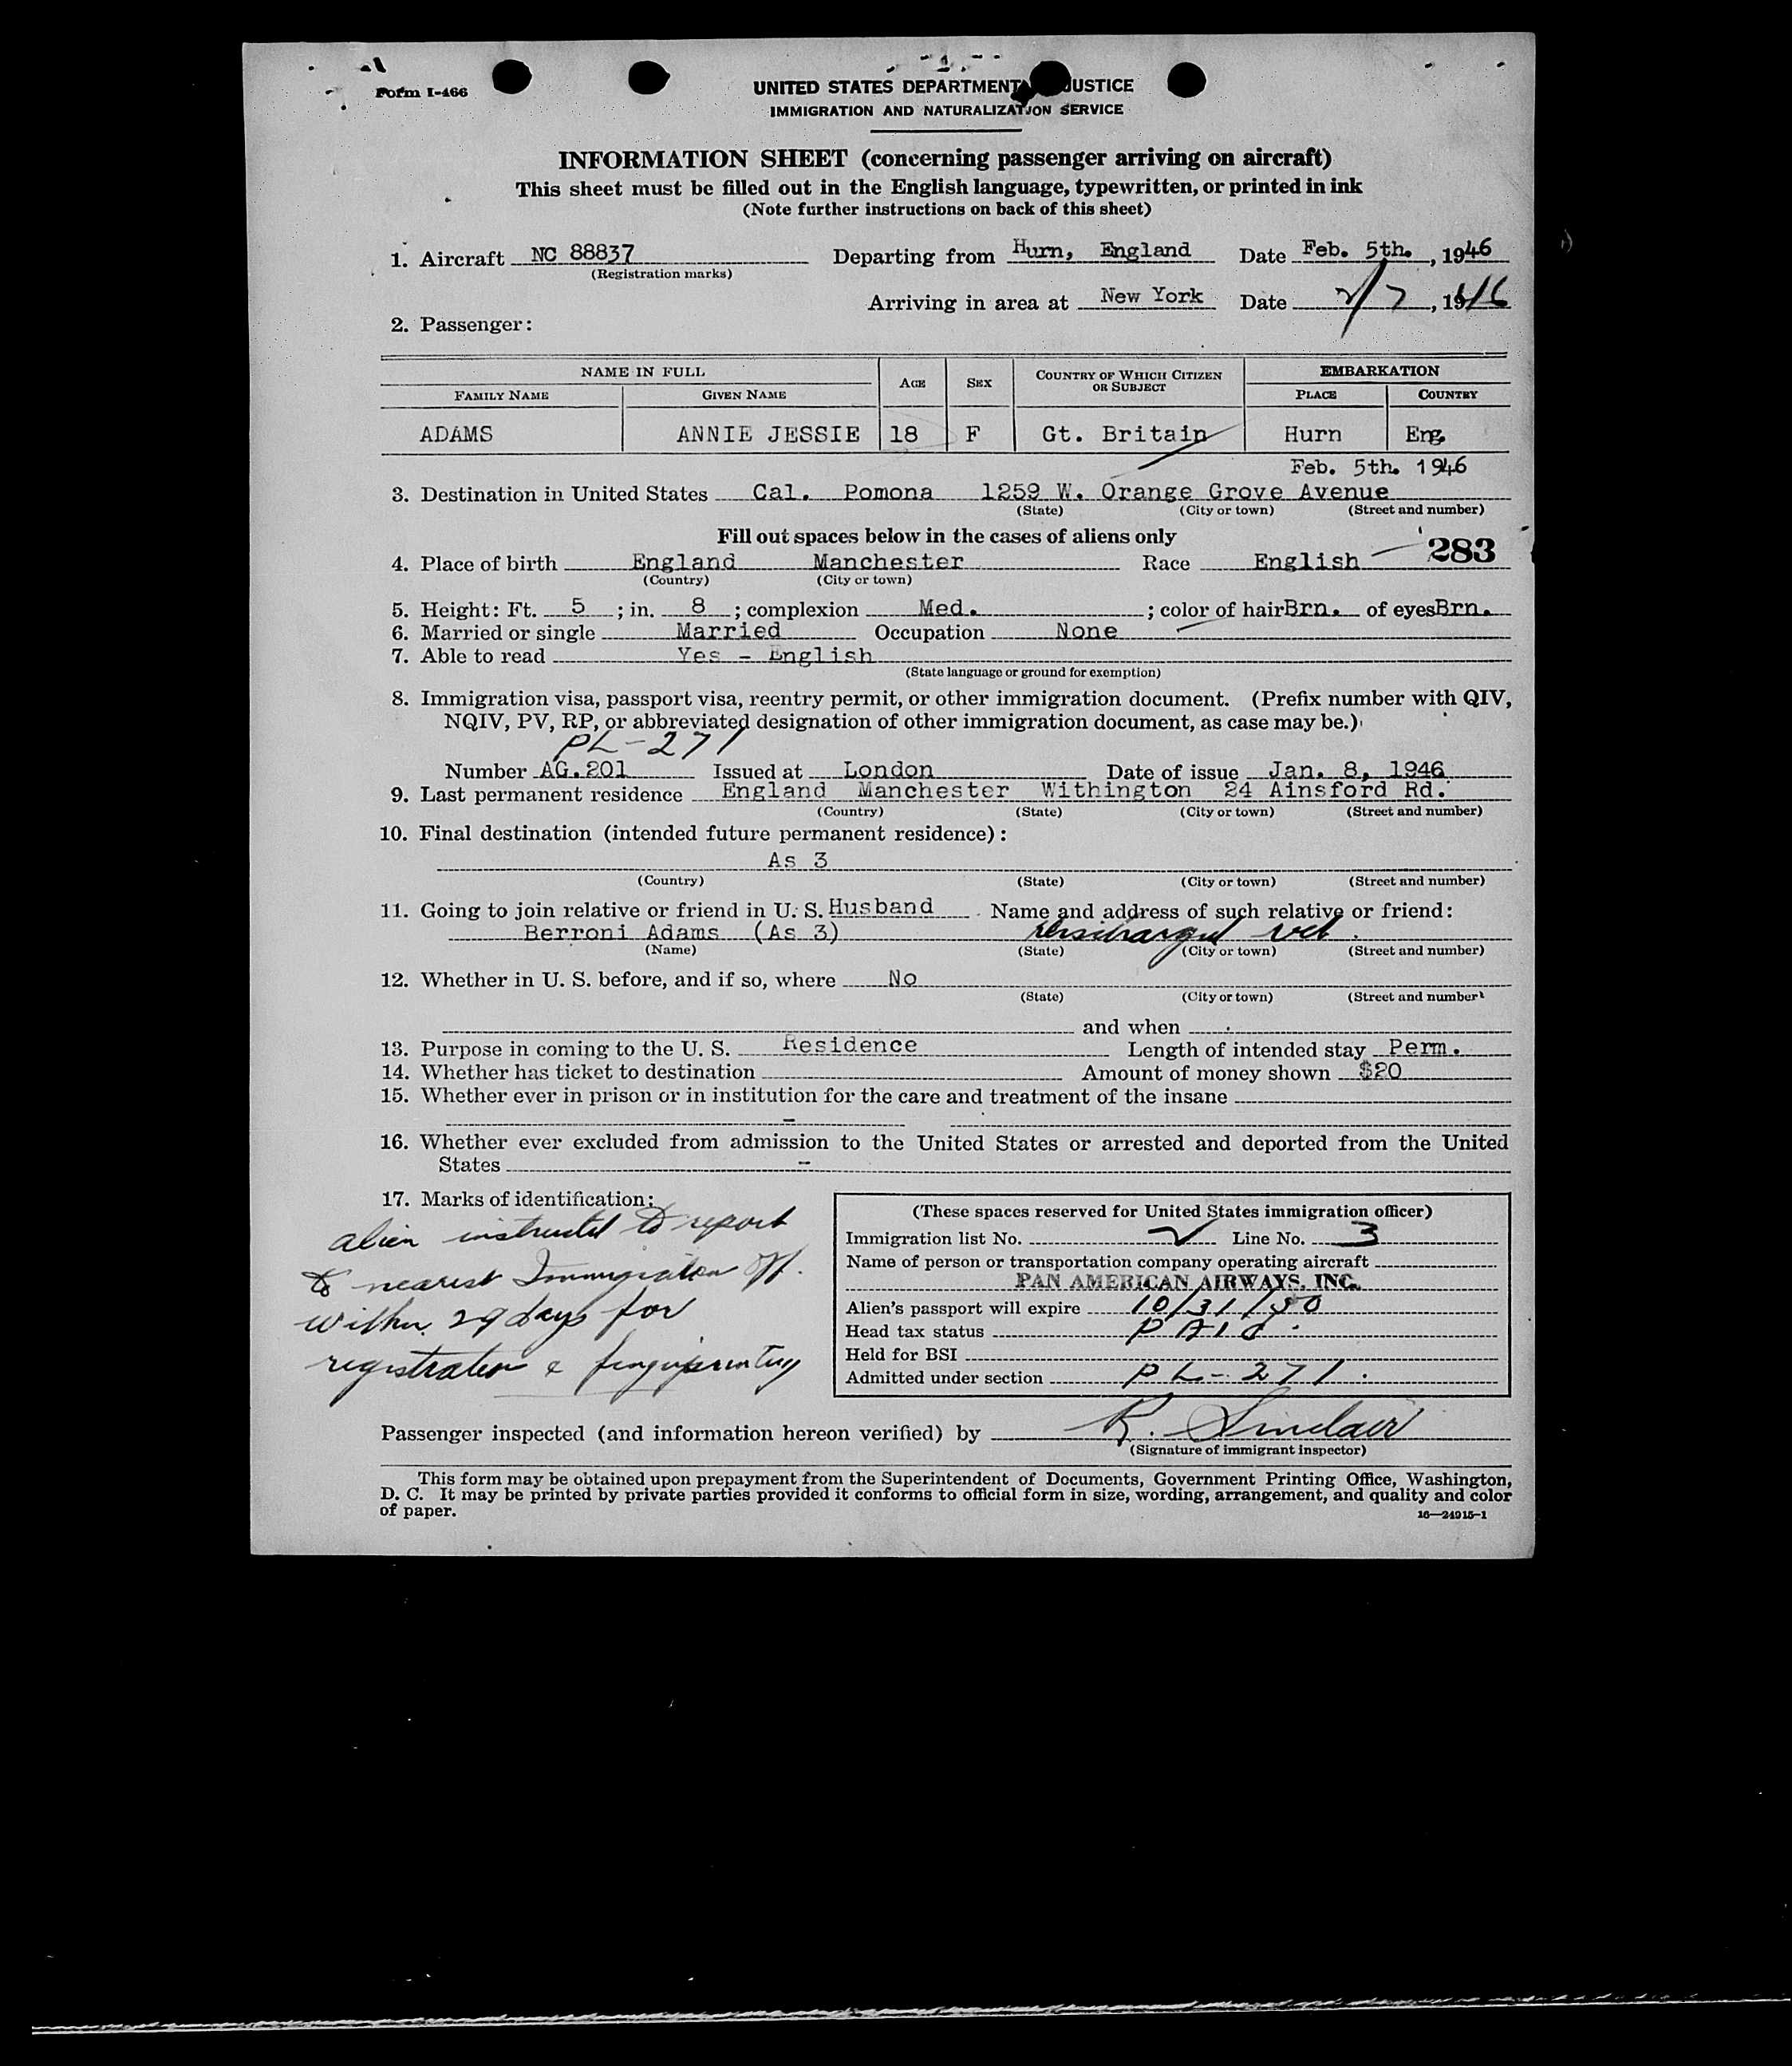 Form I-466
UNITED STATES DEPARTMENT JUSTICE
IMMIGRATION AND NATURALIZATION SERVICE
INFORMATION SHEET (concerning passenger arriving on aircraft)
This sheet must be filled out in the English language, typewritten, or printed in ink
(Note further instructions on back of this sheet)
1. Aircraft NC 88837 Departing from Hurn, England Date Feb. 5th., 1946
(Registration marks)
Arriving in area at New York Date 2/7, 1946
2. Passenger:
NAME IN FULL AGE SEX COUNTRY OF WHICH CITIZEN OR SUBJECT EMBARKATION
FAMILY NAME GIVEN NAME PLACE COUNTRY
ADAMS ANNIE JESSIE 18 F Gt. Britain Hurn Eng.
Feb. 5th. 1946
3. Destination in United States Cal. Pomona 1259 W. Orange Grove Avenue
(State) (City or town) (Street and number)
Fill out spaces below in the cases of aliens only
283
4. Place of birth England Manchester Race English
(Country) (City or town)
5. Height: Ft. 5; in. 8; complexion Med.; color of hair Brn. of eyes Brn.
6. Married or single Married Occupation None
7. Able to read Yes - English
(State language or ground for exemption)
8. Immigration visa, passport visa, reentry permit, or other immigration document. (Prefix number with QIV,
NQIV, PV, RP, or abbreviated designation of other immigration document, as case may be.)
PL-271
Number AG.201 Issued at London Date of issue Jan. 8, 1946
9. Last permanent residence England Manchester Withington 24 Ainsford Rd.
(Country) (State) (City or town) (Street and number)
10. Final destination (intended future permanent residence):
As 3
(Country) (State) (City or town) (Street and number)
11. Going to join relative or friend in U. S. Husband Name and address of such relative or friend:
Berroni Adams (As 3) vet.
(Name) (State) (City or town) (Street and number)
12. Whether in U. S. before, and if so, where No
(State) (City or town) (Street and number)
and when
13. Purpose in coming to the U. S. Residence Length of intended stay Perm.
14. Whether has ticket to destination Amount of money shown $20
15. Whether ever in prison or in institution for the care and treatment of the insane
-
16. Whether ever excluded from admission to the United States or arrested and deported from the United
States -
17. Marks of identification:
alien instructed to report
to nearest Immigration Of.
within 29 days for
registration & fingerprinting
(These spaces reserved for United States immigration officer)
Immigration list No. 2 Line No. 3
Name of person or transportation company operating aircraft
PAN AMERICAN AIRWAYS, INC.
Alien's passport will expire 10/31/50
Head tax status PAID.
Held for BSI
Admitted under section PL-271.
Passenger inspected (and information hereon verified) by R. Sinclair
(Signature of immigrant inspector)
This form may be obtained upon prepayment from the Superintendent of Documents, Government Printing Office, Washington,
D. C. It may be printed by private parties provided it conforms to official form in size, wording, arrangement, and quality and color
of paper.
16—24915-1